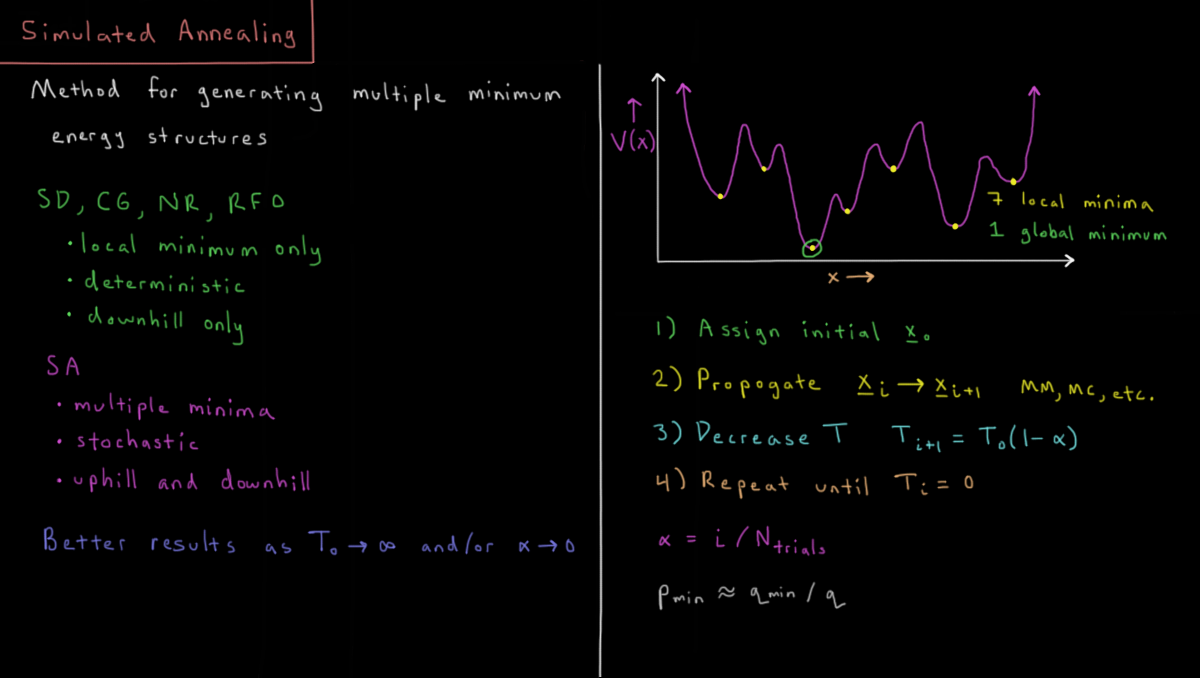 Simulated Annealing
Method for generating multiple minimum
energy structures
SD, CG, NR, RFO
• local minimum only
• deterministic
• downhill only
SA
• multiple minima
• stochastic
• uphill and downhill
Better results as T₀ → ∞ and/or α → 0
↑
V(x)
7 local minima
1 global minimum
x →
1) Assign initial x̲₀
2) Propogate x̲ᵢ → x̲ᵢ₊₁ MM, MC, etc.
3) Decrease T Tᵢ₊₁ = T₀(1-α)
4) Repeat until Tᵢ = 0
α = i / N_trials
p_min ≈ q_min / q